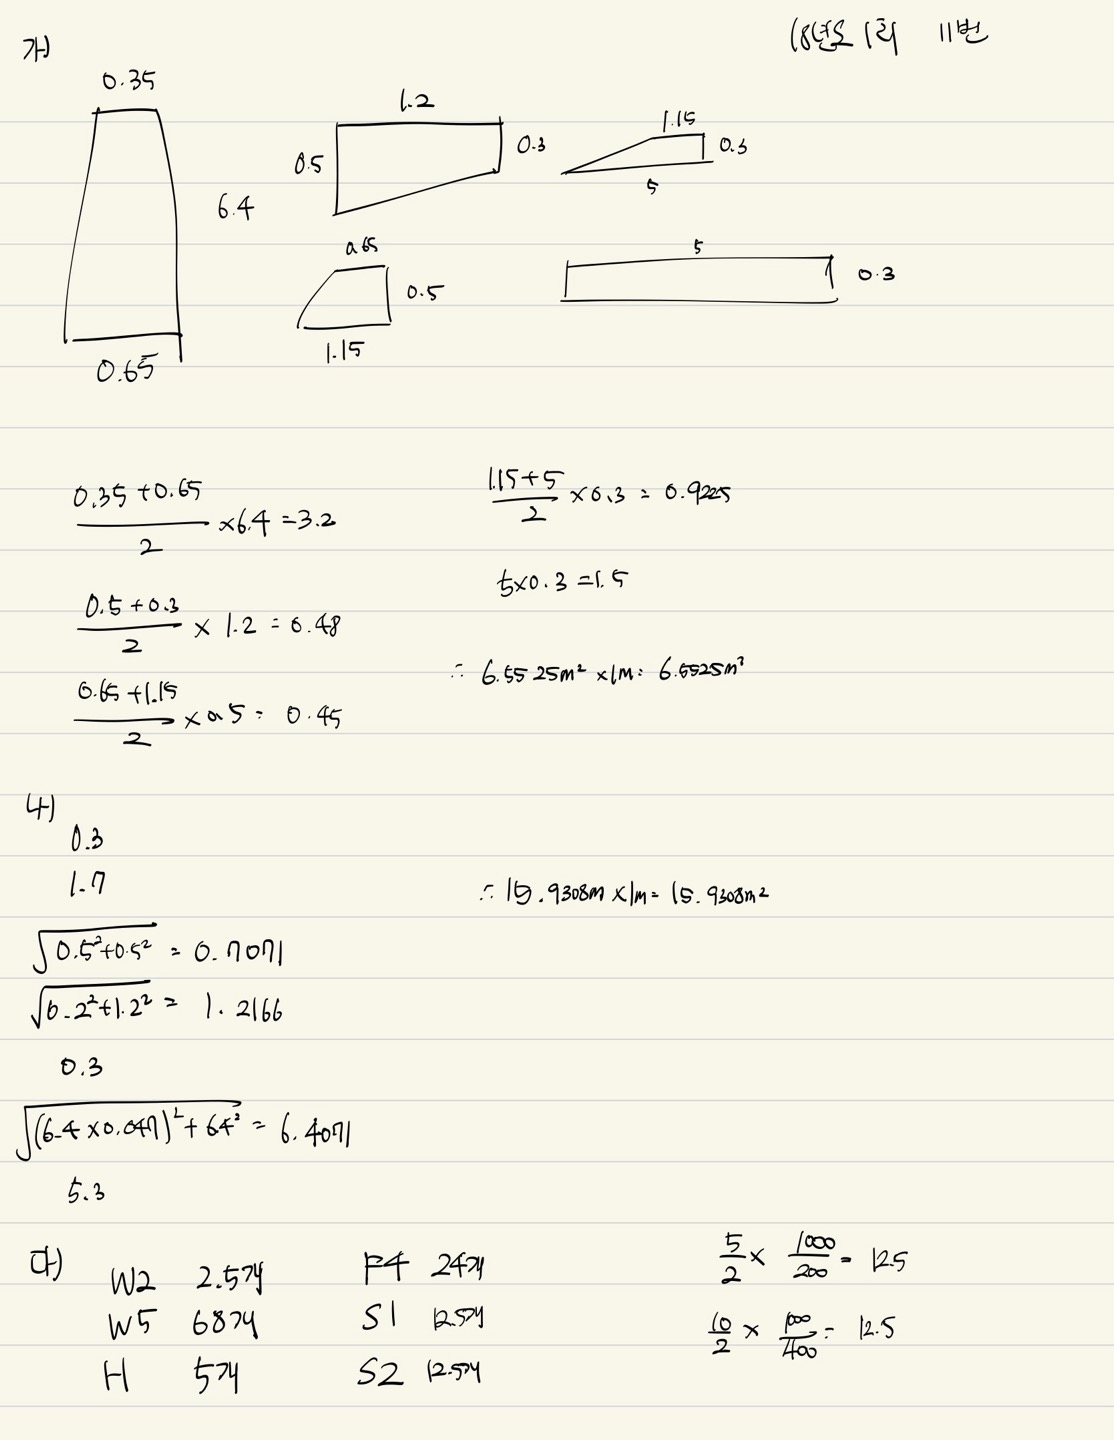 18년도 1회 11번
가)
0.35
6.4
0.65
1.2
0.5
0.3
1.15
0.3
5
0.65
0.5
1.15
5
0.3
(0.35+0.65)/2 ×6.4 =3.2
(0.5+0.3)/2 × 1.2 = 0.48
(0.65+1.15)/2 ×0.5 = 0.45
(1.15+5)/2 ×0.3 = 0.9225
5×0.3 =1.5
∴ 6.5525m² ×1m= 6.5525m³
나)
0.3
1.7
√(0.5²+0.5²) = 0.7071
√(0.2²+1.2²) = 1.2166
0.3
√((6.4×0.047)²+6.4²) = 6.4071
5.3
∴ 15.9308m ×1m= 15.9308m²
다)
W2 2.5개
W5 68개
H 5개
F4 24개
S1 12.5개
S2 12.5개
5/2 × 1000/200 = 12.5
10/2 × 1000/400 = 12.5